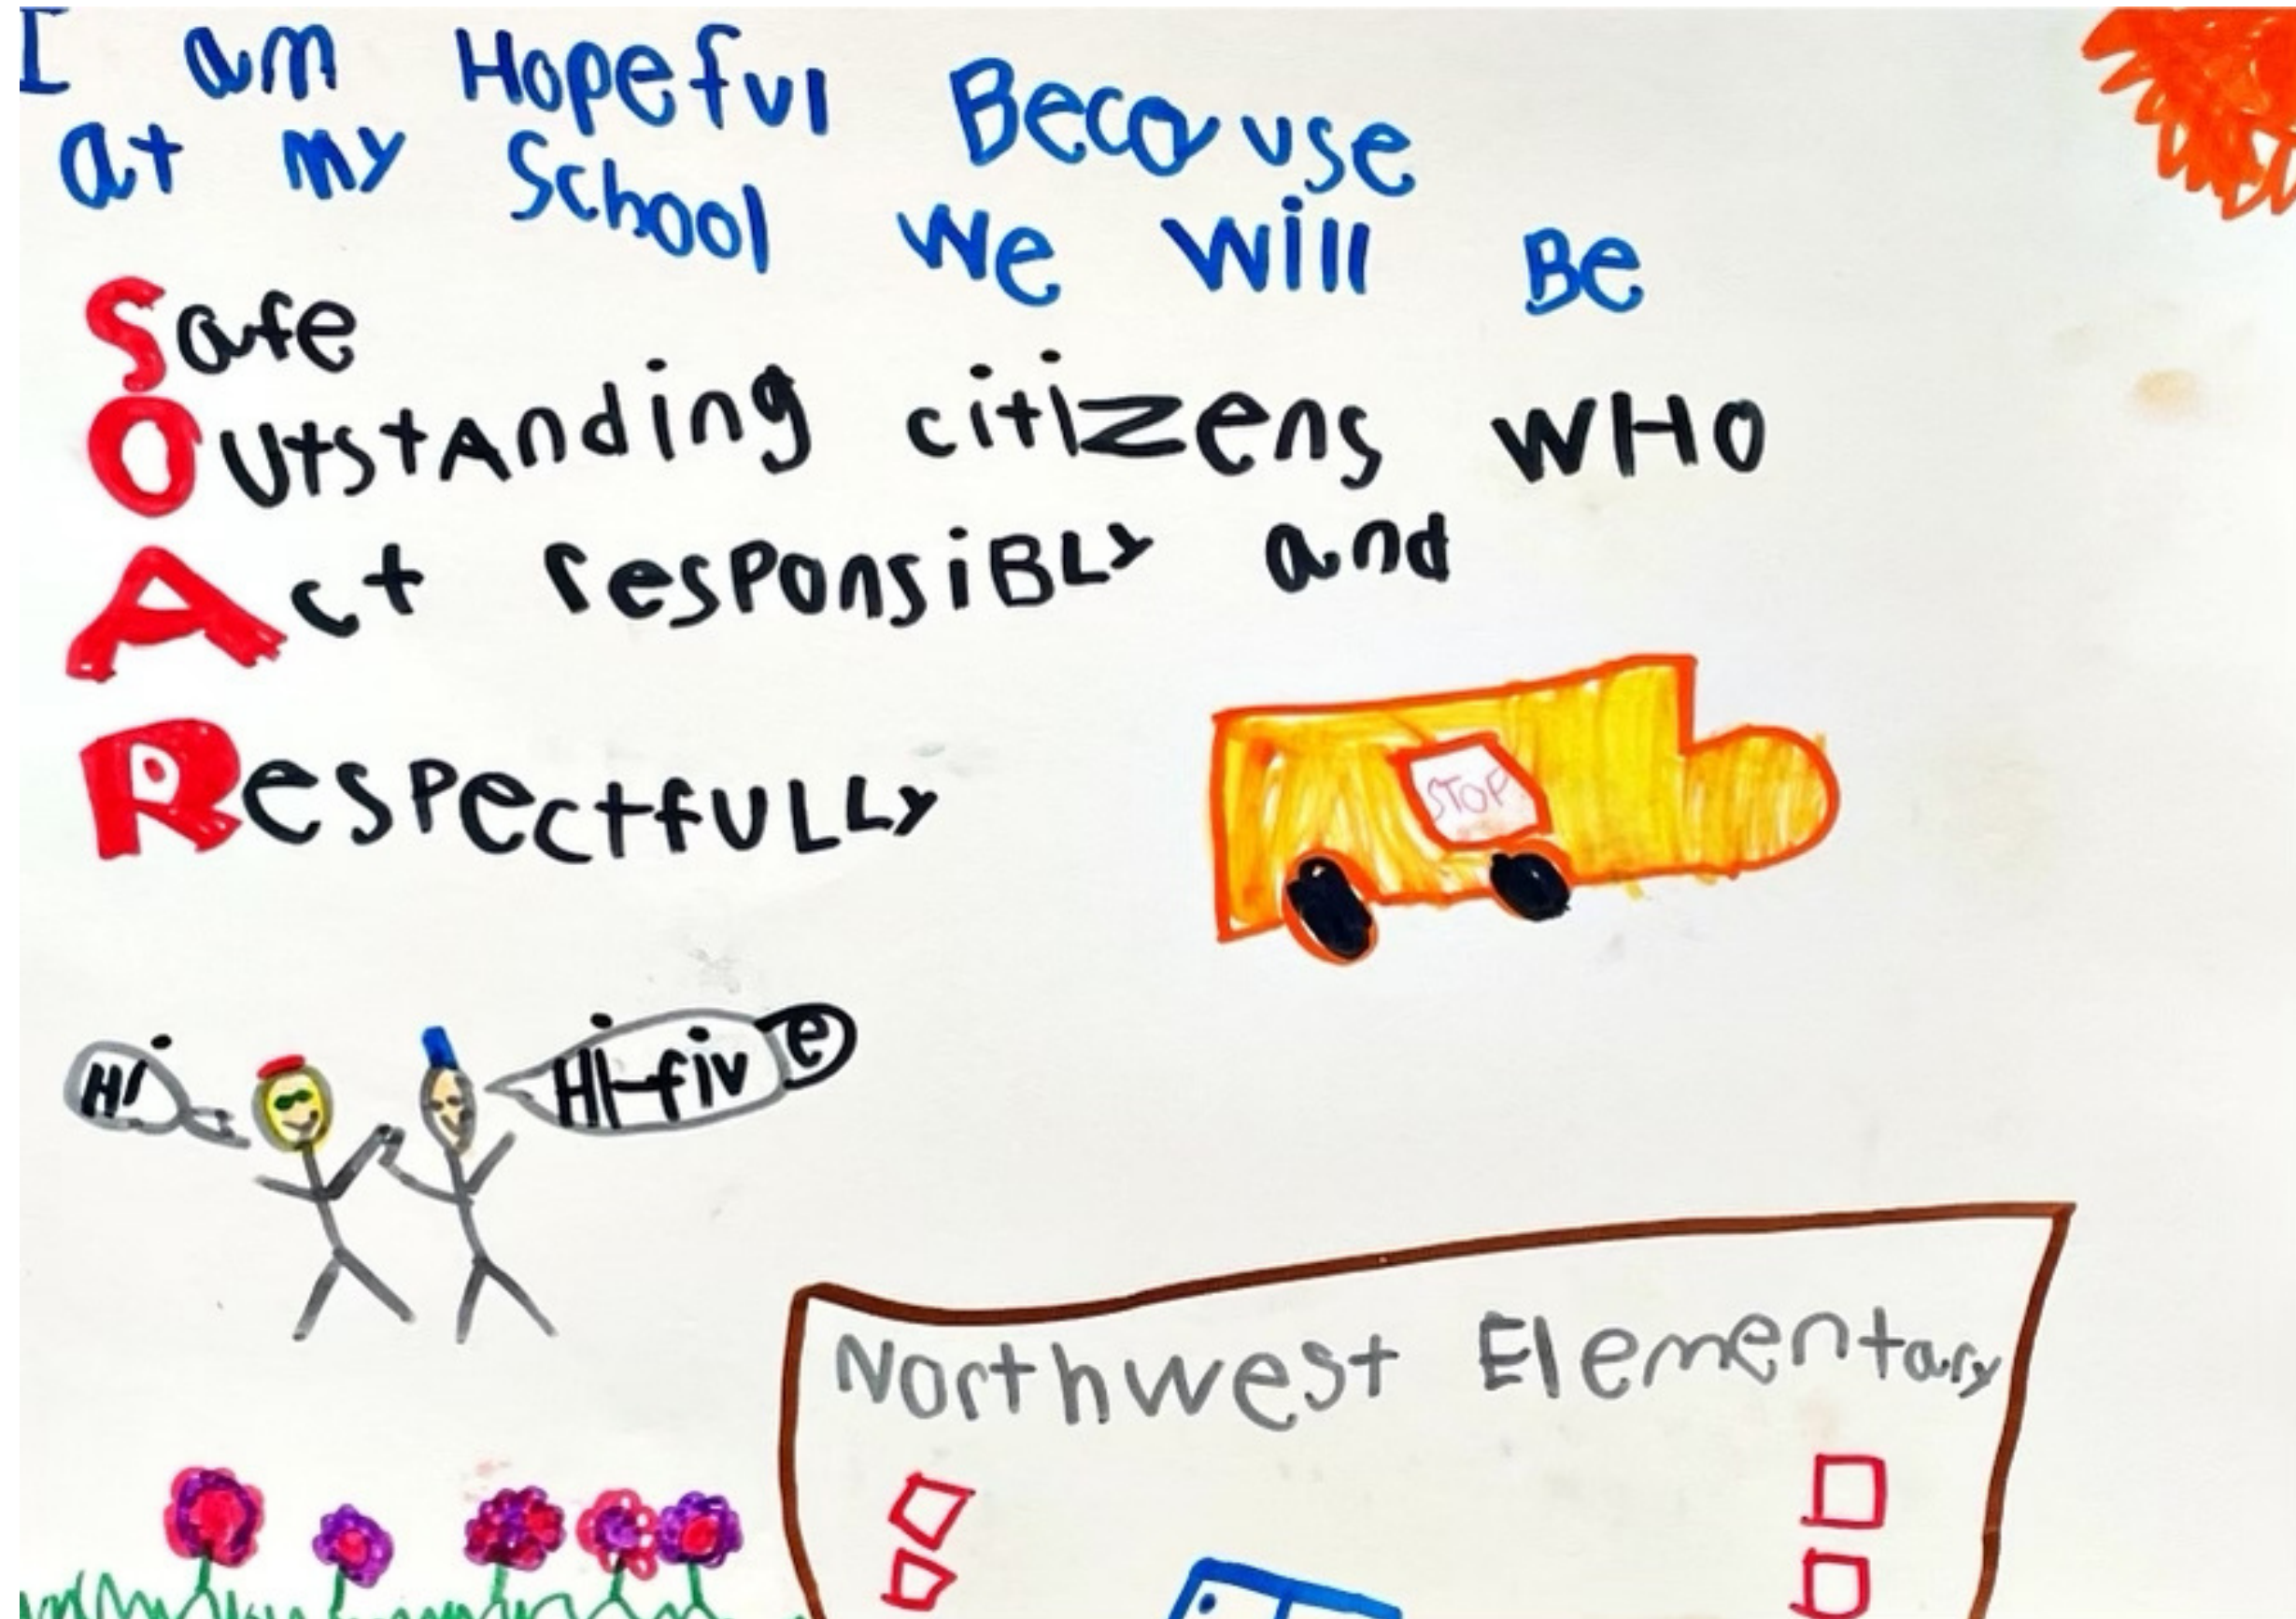 I am Hopeful Because
at my School we will Be
Safe
OutstAnding citizens WHO
Act responsiBLy and
RespectfULLy
STOP
Hi
Hi-five
Northwest Elementary